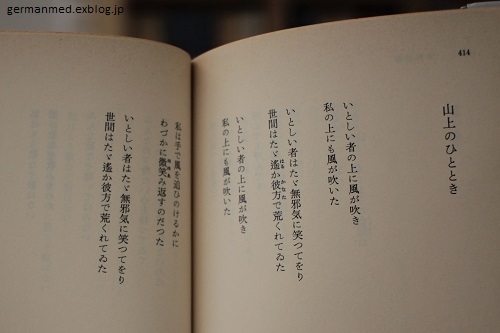 germanmed.exblog.jp
414
山上のひととき
いとしい者の上に風が吹き
私の上にも風が吹いた
いとしい者はたゞ無邪気に笑つてをり
はる かなた
世間はたゞ遥か彼方で荒くれてゐた
いとしい者の上に風が吹き
私の上にも風が吹いた
私は手で風を追ひのけるかに
わづかに微笑み返すのだつた
いとしい者はたゞ無邪気に笑つてをり
世間はたゞ遥か彼方で荒くれてゐた